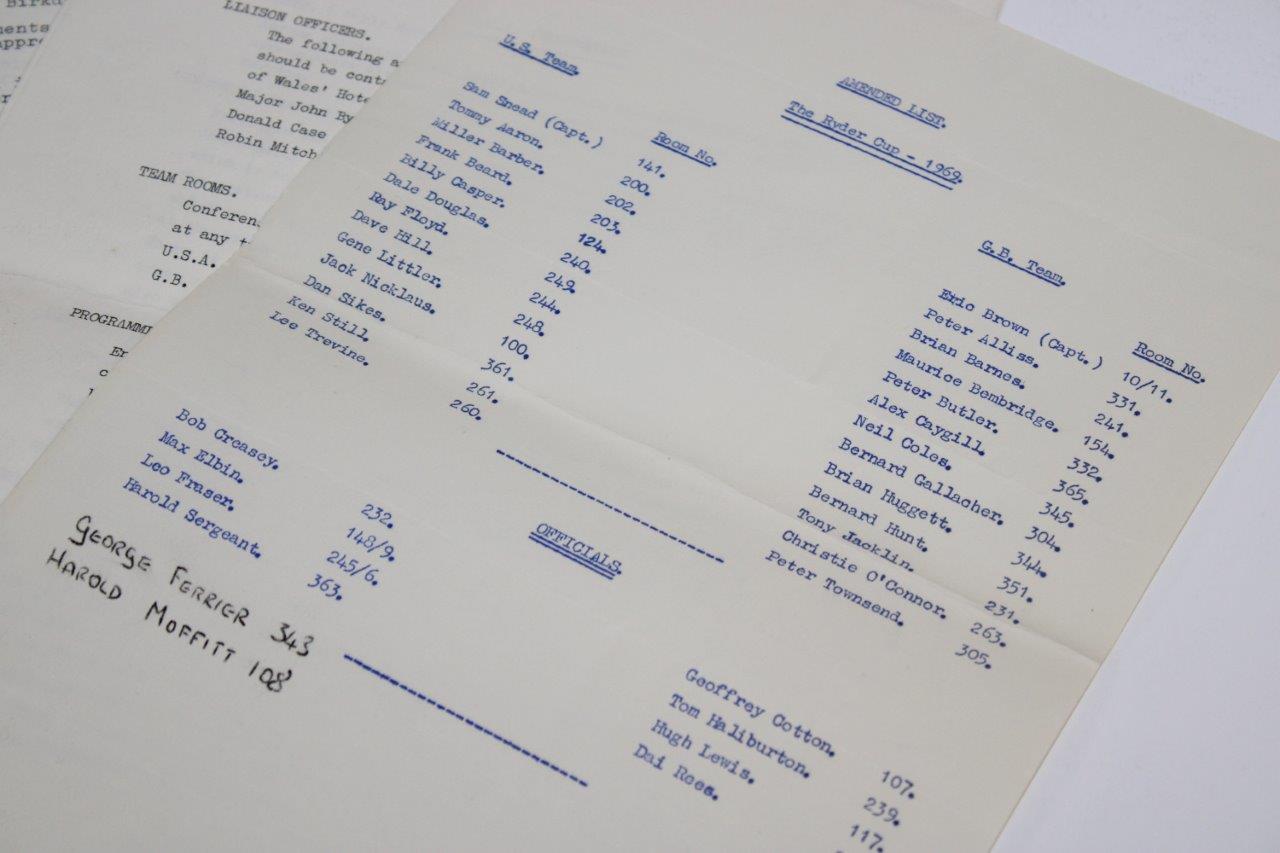 Birkd
ments
appr
LIAISON OFFICERS.
The following a
should be cont
of Wales' Hote
Major John By
Donald Case
Robin Mitch
TEAM ROOMS.
Conferen
at any t
U.S.A.
G.B.
PROGRAMM
En
AMENDED LIST.
The Ryder Cup - 1969.
U.S. Team. Room No.
Sam Snead (Capt.) 141.
Tommy Aaron. 200.
Miller Barber. 202.
Frank Beard. 203.
Billy Casper. 124.
Dale Douglas. 240.
Ray Floyd. 249.
Dave Hill. 244.
Gene Littler. 248.
Jack Nicklaus. 100.
Dan Sikes. 361.
Ken Still. 261.
Lee Trevine. 260.
G.B. Team. Room No.
Eric Brown (Capt.) 10/11.
Peter Alliss. 331.
Brian Barnes. 241.
Maurice Bembridge. 154.
Peter Butler. 332.
Alex Caygill. 365.
Neil Coles. 345.
Bernard Gallacher. 304.
Brian Huggett. 344.
Bernard Hunt. 351.
Tony Jacklin. 231.
Christie O'Connor. 263.
Peter Townsend. 305.
OFFICIALS.
Bob Creasey. 232.
Max Elbin. 148/9.
Leo Fraser. 245/6.
Harold Sergeant. 363.
GEORGE FERRIER 343
HAROLD MOFFITT 108
Geoffrey Cotton. 107.
Tom Haliburton. 239.
Hugh Lewis. 117.
Dai Rees.